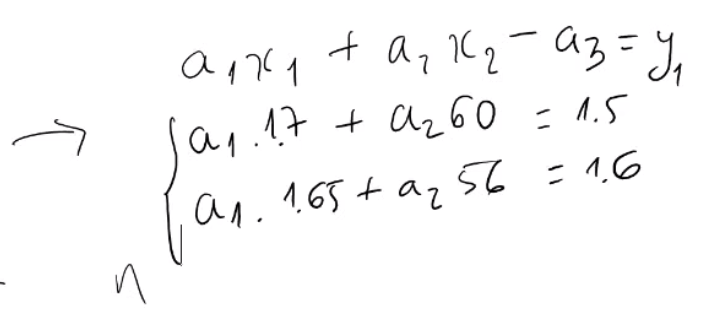 a₁x₁ + a₂x₂ - a₃ = y₁
→ { a₁ . 1.7 + a₂ 60 = 1.5
a₁ . 1.65 + a₂ 56 = 1.6
n